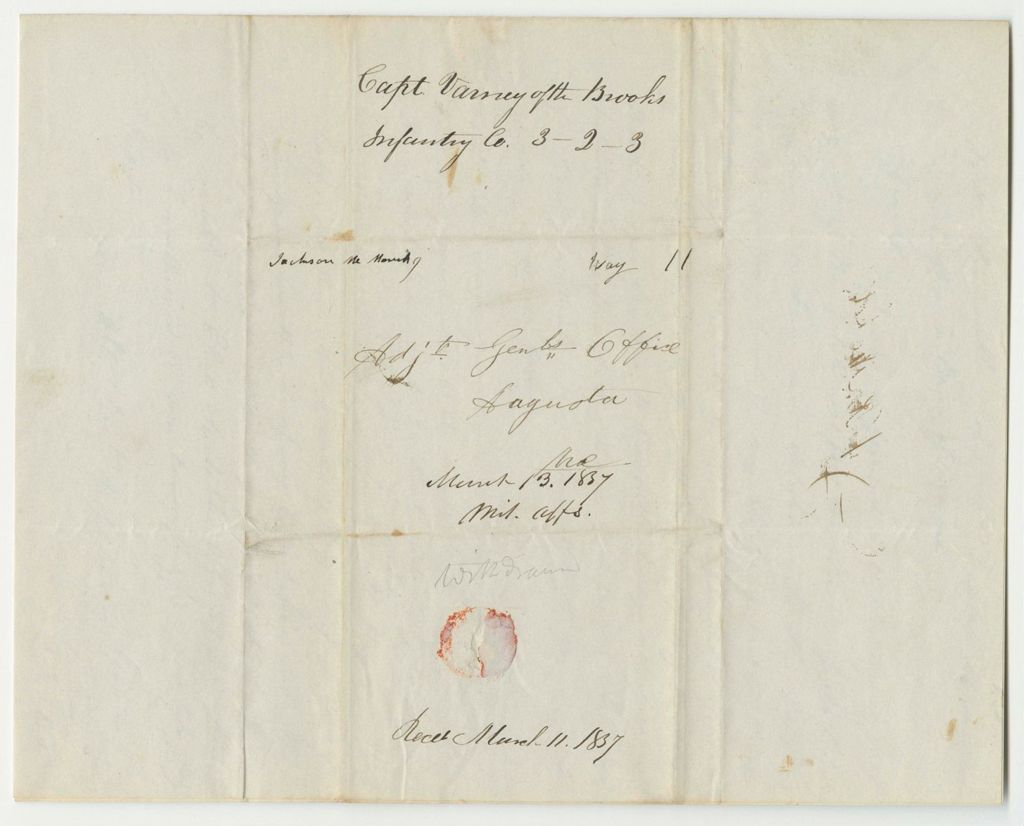 Capt. Varney of the Brooks
Infantry Co. 3-2-3
Jackson Me March 9 Way 11
Adjt. Genls Office
Augusta
Me
March 13. 1837
Mil. affs.
Withdrawn
Recd March 11. 1837